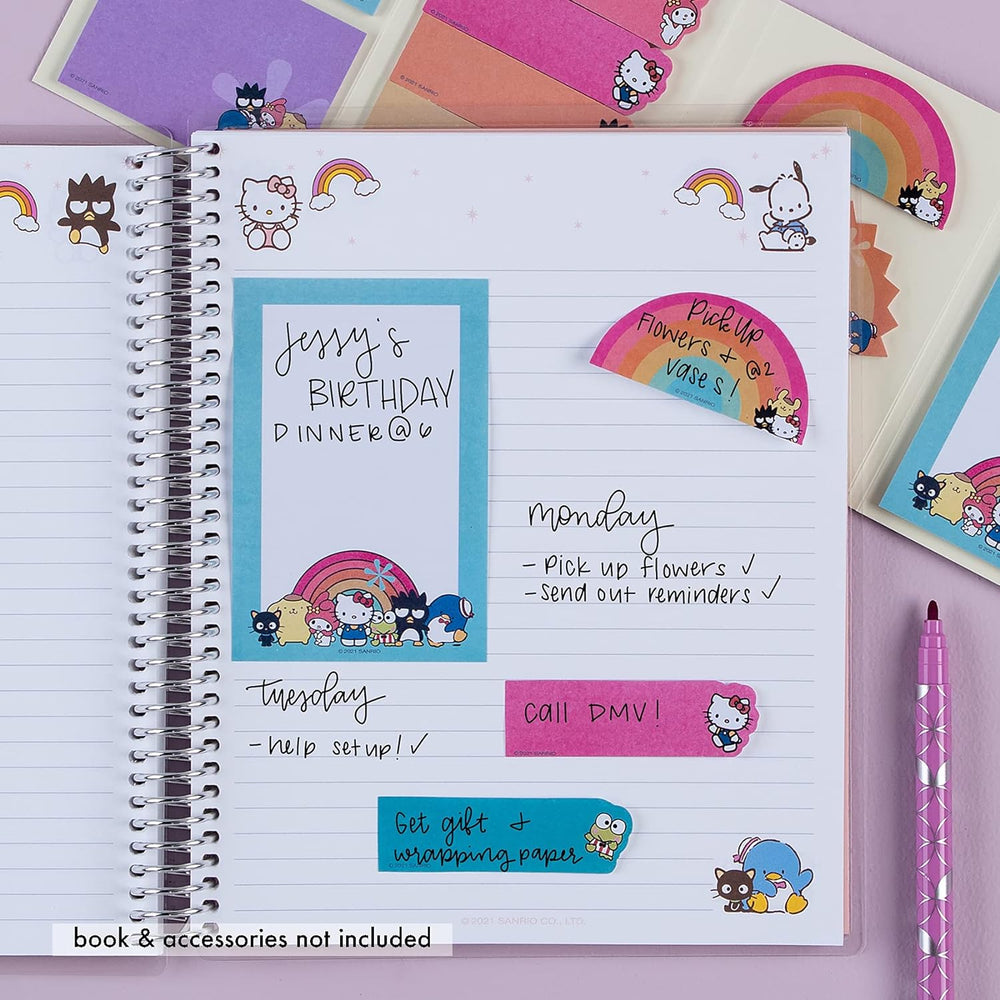 © 2021 SANRIO
© 2021 SANRIO
© 2021 SANRIO
Jessy's
BIRTHDAY
DINNER@6
© 2021 SANRIO
Pick Up
Flowers + @2
Vases!
© 2021 SANRIO
monday
- Pick up flowers ✓
- Send out reminders ✓
Tuesday
- help setup! ✓
call DMV!
© 2021 SANRIO
Get gift +
wrapping paper
© 2021 SANRIO CO., LTD.
book & accessories not included